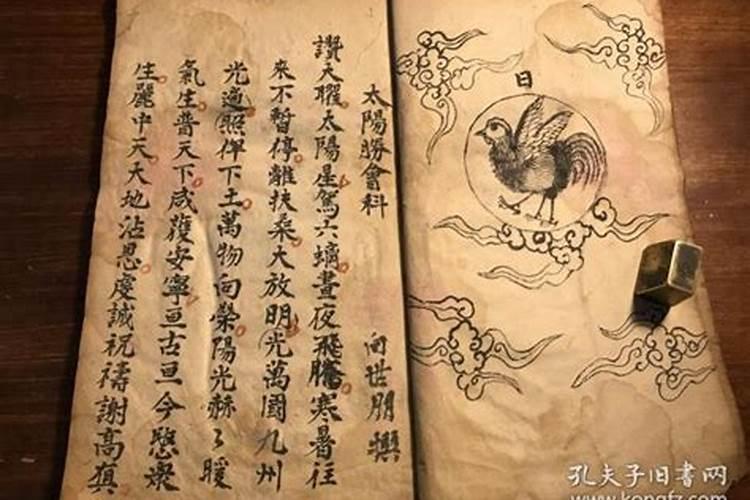 日
太陽勝會科 向世朋撰
讚天曜太陽星駕六螭晝夜飛騰寒暑往
來不暫停離扶桑大放明光萬國九州
光遍照俾下土萬物向榮陽光赫々暖
氣生普天下咸獲安寧亘古亘今愍衆
生麗中天天地沾恩虔誠祝禱謝高
孔夫子旧书网